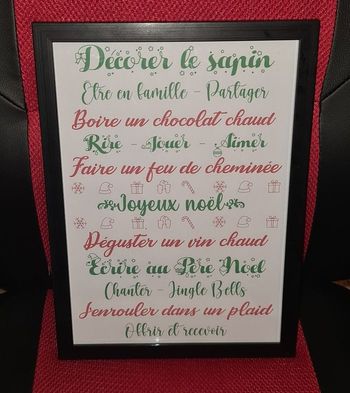 Décorer le sapin
Etre en famille - Partager
Boire un chocolat chaud
Rire - Jouer - Aimer
Faire un feu de cheminée
Joyeux noël
Déguster un vin chaud
Ecrire au Père Noël
Chanter - Jingle Bells
S'enrouler dans un plaid
Offrir et recevoir